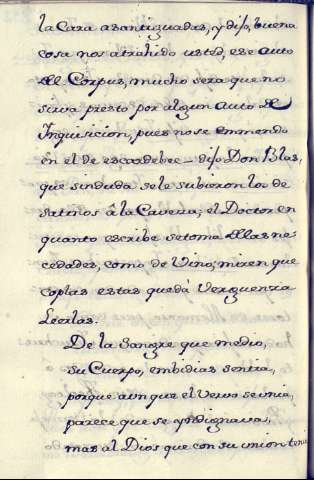 la Cara asantiguadas, y dijo, buena
cosa nos atrahido usted, ese auto
del Corpus, mucho sera que no
sirva presto por algun auto de
Inquisicion, pues no se enmendo
en el de escardebec - dijo Don Blas,
que sinduda sele subieron los de
satinos â la Caveza; el Doctor en
quanto escribe setoma dellas ne
cedades, como de Vino; miren que
coplas estas que dà Verguenza
Leerlas.
De la Sangre que medio,
su Cuerpo, embidias sentia,
porque aunque el Vervo seunia,
parece que se yndignava,
mas al Dios que con su union tenia